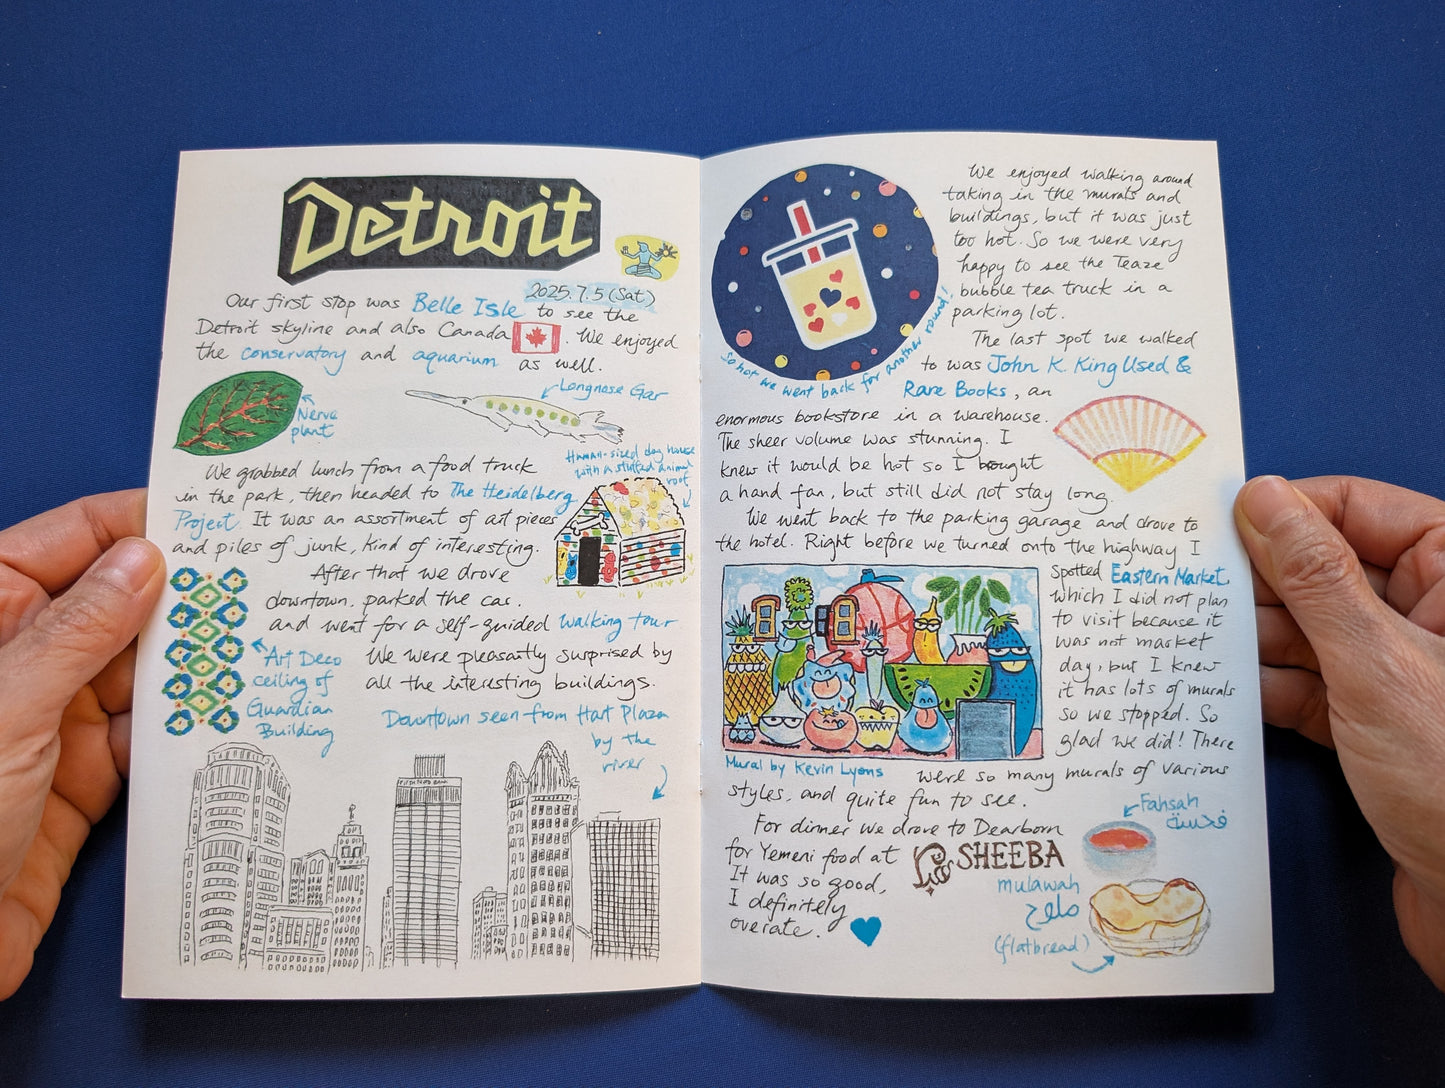 Detroit
2025.7.5 (Sat)
Our first stop was Belle Isle to see the
Detroit skyline and also Canada . We enjoyed
the conservatory and aquarium as well.
Nerve
plant
Longnose Gar
We grabbed lunch from a food truck
in the park, then headed to The Heidelberg
Project. It was an assortment of art pieces
and piles of junk, kind of interesting.
Human-sized dog house
with a stuffed animal
roof
After that we drove
downtown, parked the car.
and went for a self-guided walking tour
We were pleasantly surprised by
all the interesting buildings.
Art Deco
ceiling of
Guardian
Building
Downtown seen from Hart Plaza
by the
river
We enjoyed walking around
taking in the murals and
buildings, but it was just
too hot. So we were very
happy to see the Teaze
bubble tea truck in a
parking lot.
So hot we went back for another round!
The last spot we walked
to was John K. King Used &
Rare Books, an
enormous bookstore in a warehouse.
The sheer volume was stunning. I
knew it would be hot so I brought
a hand fan, but still did not stay long.
We went back to the parking garage and drove to
the hotel. Right before we turned onto the highway I
spotted Eastern Market
which I did not plan
to visit because it
was not market
day, but I knew
it has lots of murals
so we stopped. So
glad we did! There
were so many murals of various
styles, and quite fun to see.
Mural by Kevin Lyons
For dinner we drove to Dearborn
for Yemeni food at SHEEBA
It was so good,
I definitely
overate.
Fahsah
فحسة
mulawah
ملوح
(flatbread)